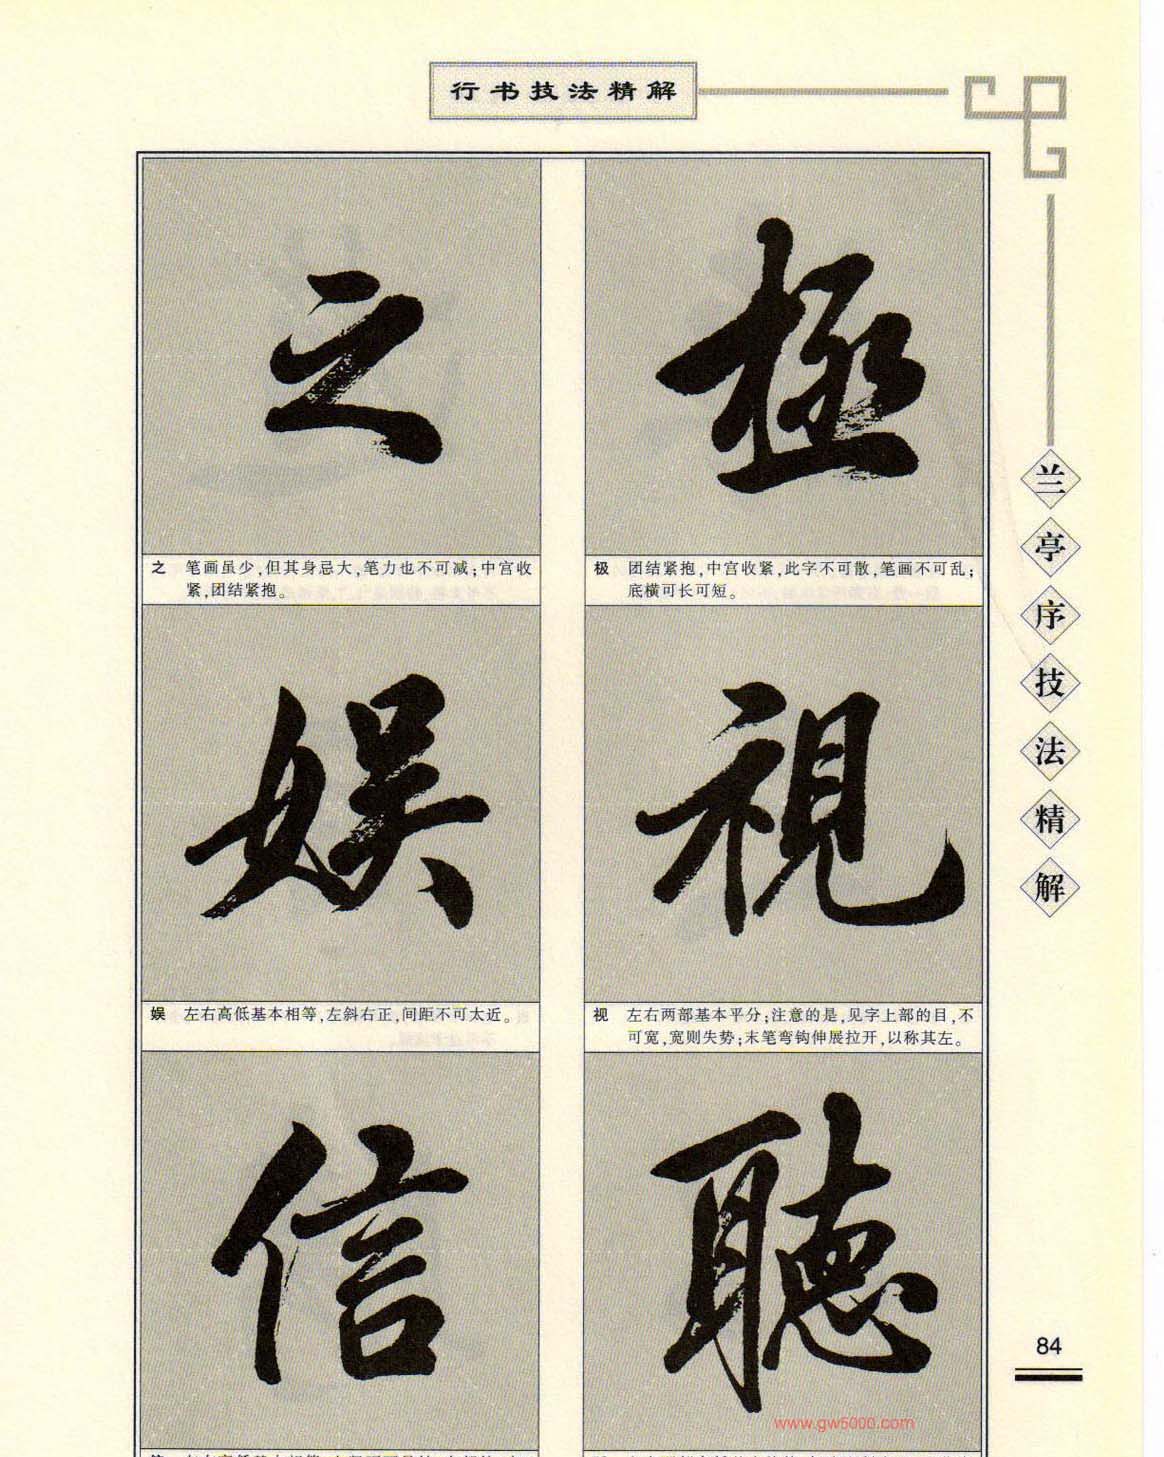 行书技法精解
極
极 团结紧抱,中宫收紧,此字不可散,笔画不可乱;
底横可长可短。
視
视 左右两部基本平分;注意的是,见字上部的目,不
可宽,宽则失势;末笔弯钩伸展拉开,以称其左。
聽
之
之 笔画虽少,但其身忌大,笔力也不可减;中宫收
紧,团结紧抱。
娱
娱 左右高低基本相等,左斜右正,间距不可太近。
信
兰亭序技法精解
84
www.gw5000.com